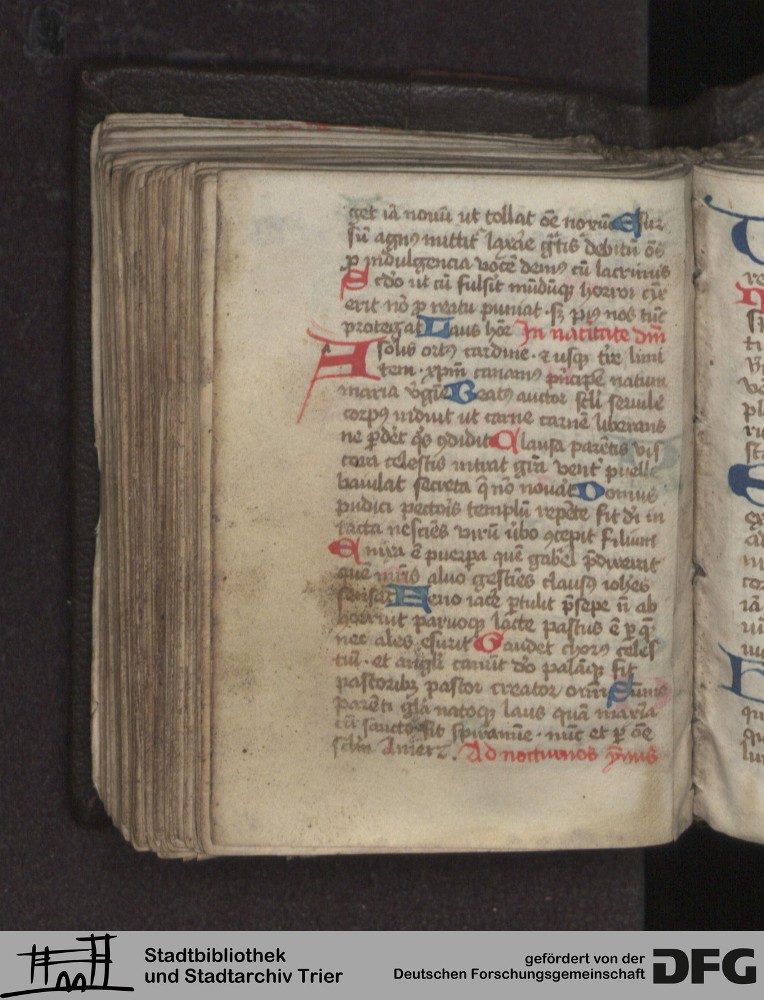 get iā nouū ut tollat oē noxiū Sur
sū agn⁹ mittit᷑ laxare gͣtis debitū ōs
ꝓ indulgencia vocē dem⁹ cū lacrimis
Scdo ut cū fulsit mūdūq horror cīx
erit nō ꝓ reatu puniat · sꝫ pi⁹ nos tūc
protegat Laus hōr In natiītate dm̄i
A solis ort⁹ cardine · ⁊ usq tr̄e limi
tem · xpm̄ canam⁹ pͥncipē natum
maria v̓gīe Beat⁹ auctor scli seruile
corp⁹ induit ut carne carnē liberans
ne ꝑdēt qͦs ꝯdidit Clausa parētis vis
cera celestis intrat gr̄a vent᷑ puelle
baiulat secreta q̄ nō nouat Domus
pudici pectoris templū repēte fit di in
tacta nesciēs virū ubo ꝯcepit filium
Enixa ē puerpa quē gabel p̄dixerat
quē mr̄is aluo gestiēs claus⁹ iohēs
senserat Feno iacē ꝑtulit p̄sepe n̄ ab
horruit paruoq lacte pastus ē ꝑ qͣ
nec ales esurit Gaudet chor⁹ celes
tiū · et angli canūt do palāq fit
pastoribꝫ pastor creator oīm Sūmo
parēti gl̄a natoq laus quā maxīa
cū sancto sit spiramīe · nūc et ꝑ oē
sclm Amen. Ad nocturnos ym̄us
re
ti
ve
pl
ex
al
m
co
ia
qu
lu
Stadtbibliothek
und Stadtarchiv Trier
gefördert von der
Deutschen Forschungsgemeinschaft
DFG